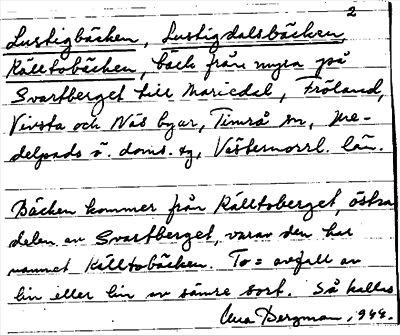 2
Lustigbäcken, Lustigdalsbäcken,
Källtobäcken, bäck från myra på
Svartberget till Mariedal, Fröland,
Vivsta och Näs byar, Timrå sn, Me-
delpads ö. doms. sg, Västernorrl. län.
Bäcken kommer från Källtoberget, östra
delen av Svartberget, varav den har
namnet Källtobäcken. To = avfall av
lin eller lin av sämre sort. Så kallas
Bergman, 1944.